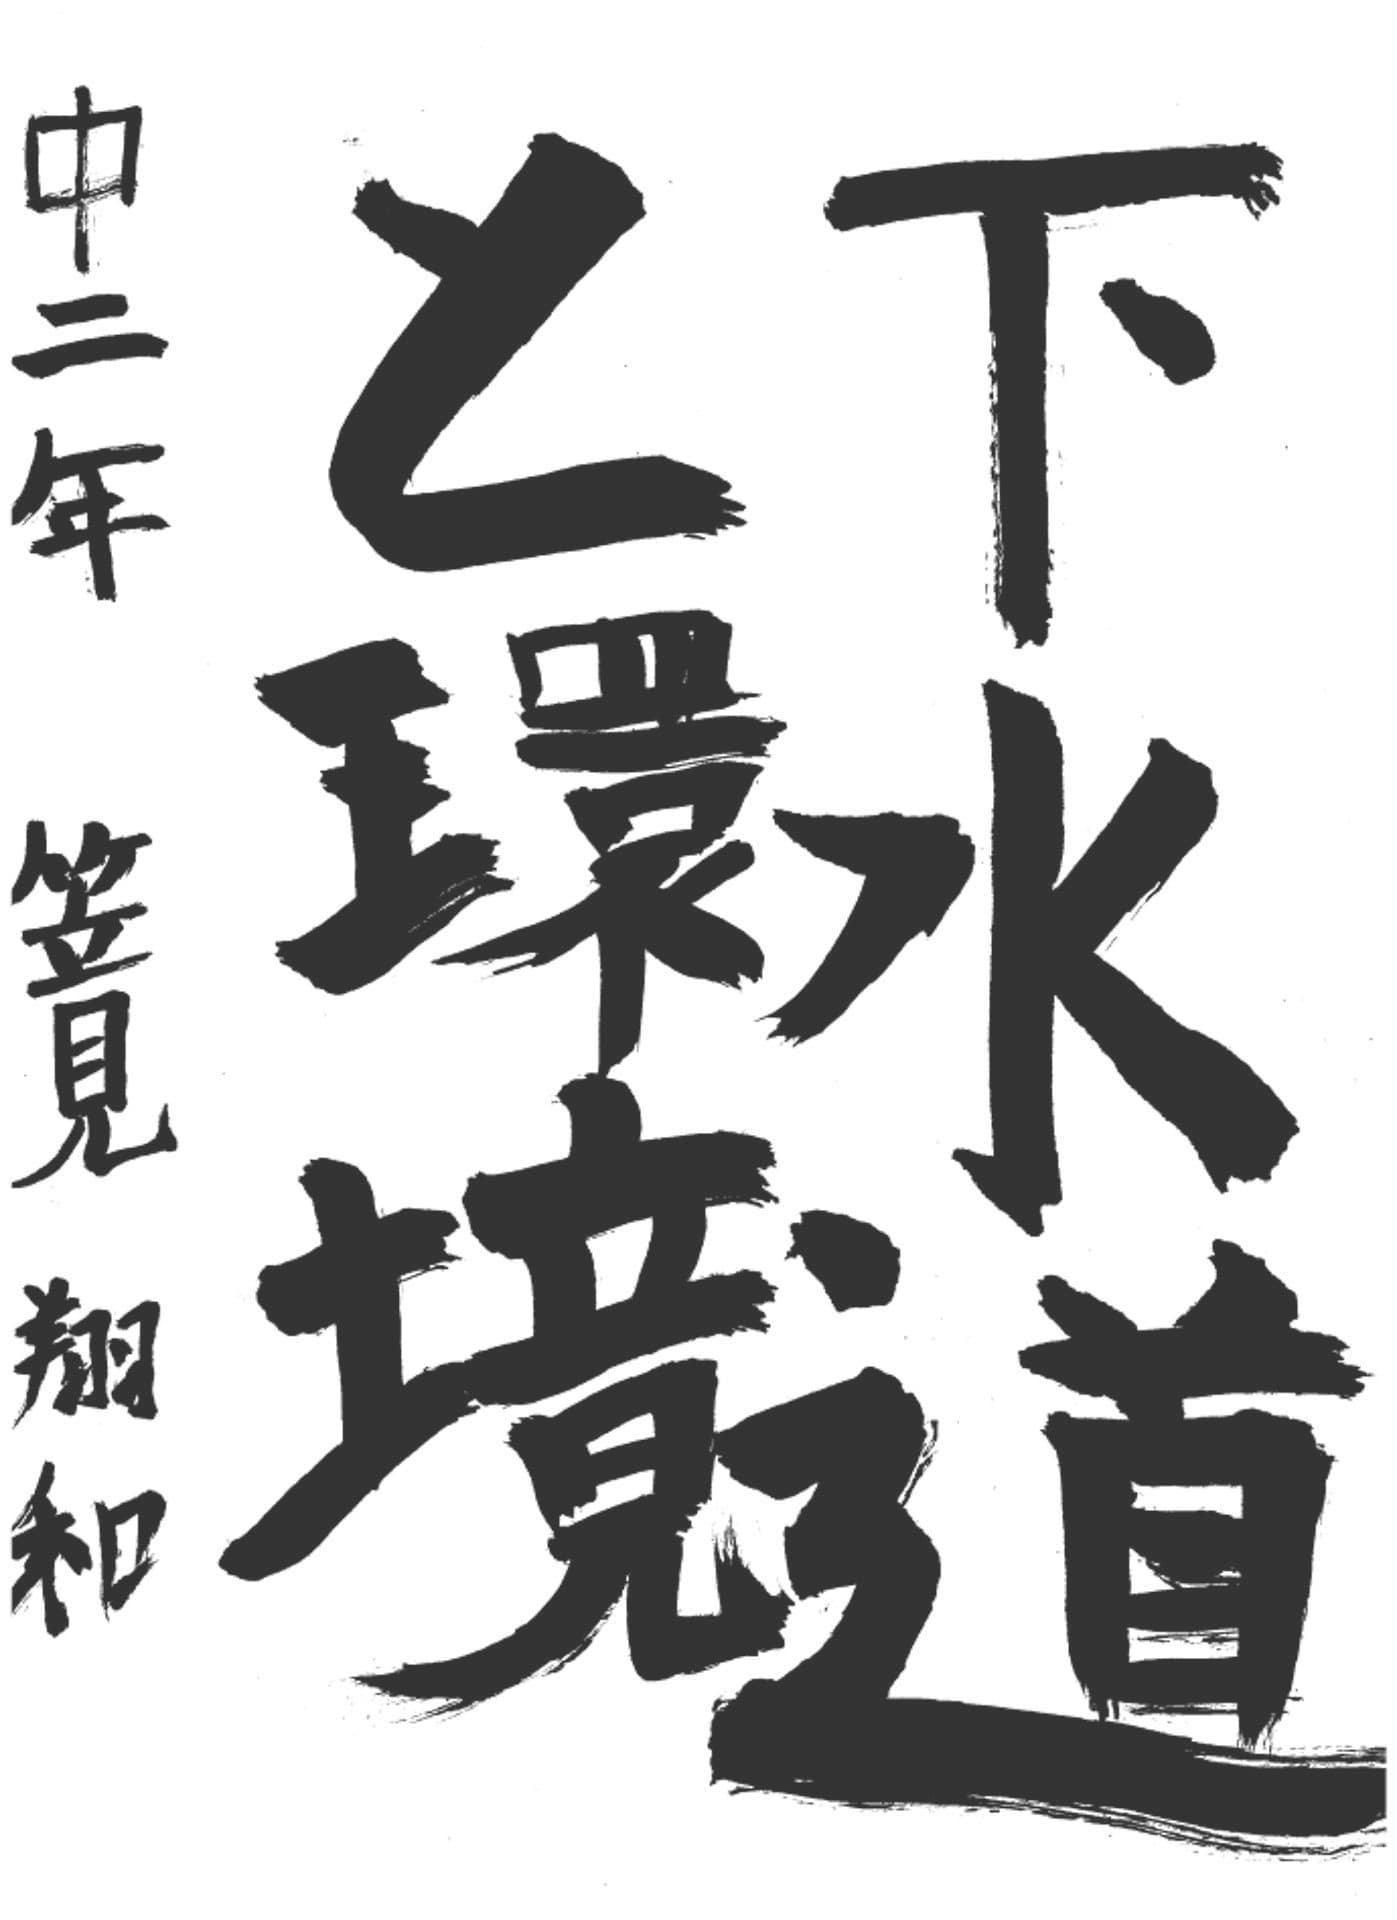 下水道
と環境
中二年 笠見 翔和